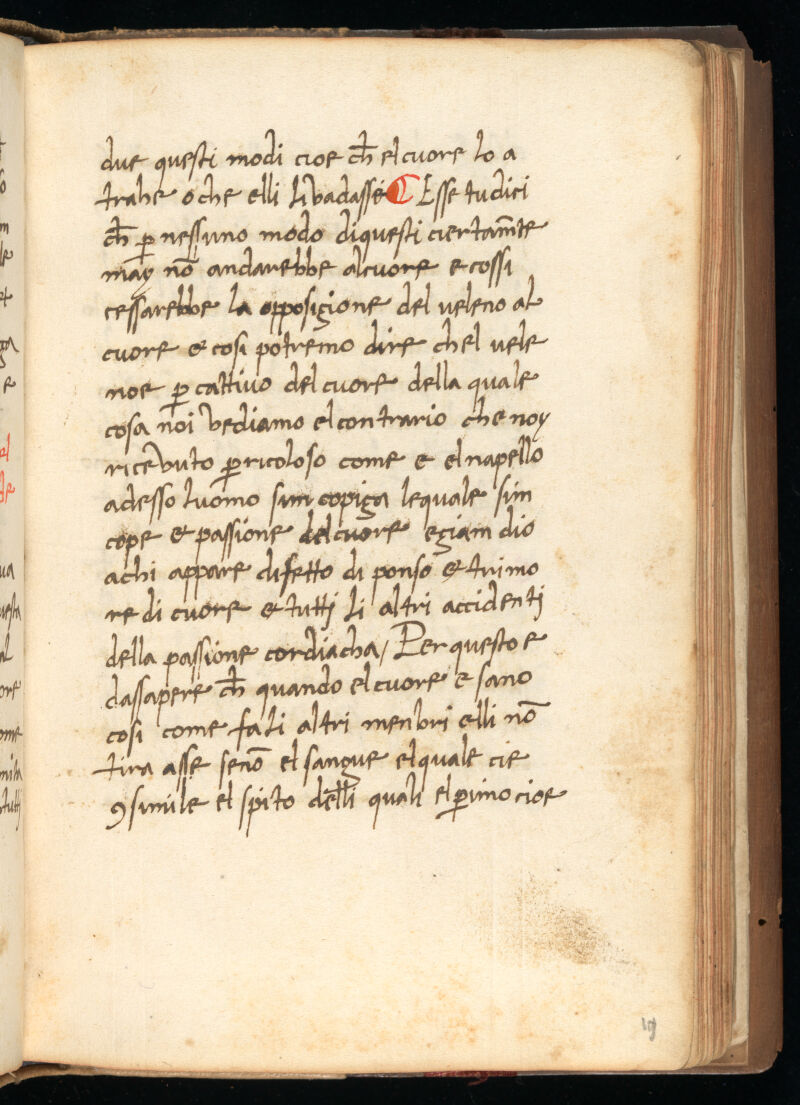 due questi modi cioe ch̄ el cuore lo a
trahe o che elli li vadasse ¶ Esse tu dici
ch̄ ꝑ nessuno modo di questi ciertam̄te
may nō andarebbe al cuore e cossi
cessarebbe la opposigione del veleno al
cuore et cosi potremo dire chel vele
no e ꝑ cattivo del cuore della quale
cosa noi vediamo el contrario che noy
ricevuto ꝑicoloso come e el napello
adesso luomo sincopiga lequale sin
cope et passione del cuore egiam dio
achi appare difetto di ponso et trimo
re di cuore et tuttj li altri accidentj
della passione cordiacha / Per questo e
dassapere ch̄ quando el cuore e sano
cosi come fa li altri menbri elli nō
tira asse senō el sangue el quale cie
ꝯsimile el spito delli quali el pimo cioe
19